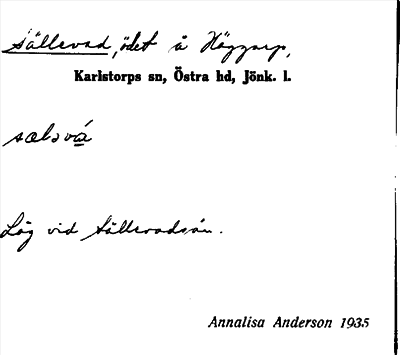 Sällevad, ödet å Häggarp,
Karlstorps sn, Östra hd, Jönk. l.
Låg vid Sällevadsån.
Annalisa Anderson 1935